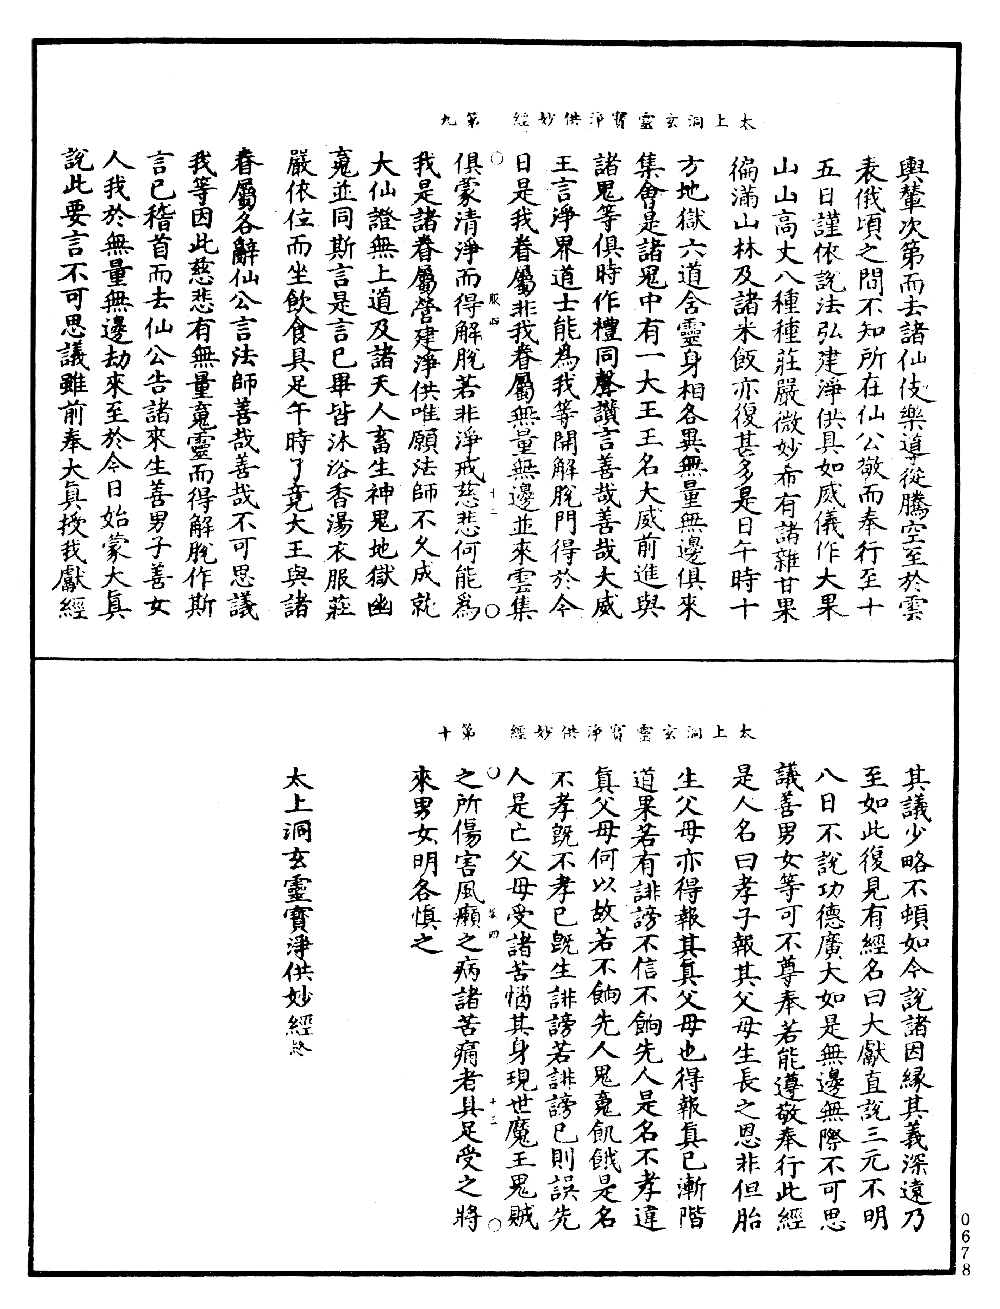 太上洞玄靈寶淨供妙經　第九
輿輦次第而去諸仙伎樂導從騰空至於雲
表俄頃之間不知所在仙公敬而奉行至十
五日謹依說法弘建淨供具如威儀作大果
山山高丈八種種莊嚴微妙希有諸雜甘果
徧滿山林及諸米飯亦復甚多是日午時十
方地獄六道含靈身相各異無量無邊俱來
集會是諸鬼中有一大王王名大威前進與
諸鬼等俱時作禮同聲讚言善哉善哉大威
王言淨界道士能為我等開解脫門得於今
日是我眷屬非我眷屬無量無邊並來雲集
俱蒙清淨而得解脫若非淨戒慈悲何能為
我是諸眷屬營建淨供唯願法師不久成就
大仙證無上道及諸天人畜生神鬼地獄幽
䰟並同斯言是言已畢皆沐浴香湯衣服莊
嚴依位而坐飲食具足午時了竟大王與諸
眷屬各辭仙公言法師善哉善哉不可思議
我等因此慈悲有無量䰟靈而得解脫作斯
言已稽首而去仙公告諸來生善男子善女
人我於無量無邊劫來至於今日始蒙大真
說此要言不可思議雖前奉大真授我獻經
服四
十二
太上洞玄靈寶淨供妙經　第十
其議少略不頓如今說諸因緣其義深遠乃
至如此復見有經名曰大獻直說三元不明
八日不說功德廣大如是無邊無際不可思
議善男女等可不尊奉若能遵敬奉行此經
是人名曰孝子報其父母生長之恩非但胎
生父母亦得報其真父母也得報真已漸階
道果若有誹謗不信不餉先人是名不孝違
真父母何以故若不餉先人鬼䰟飢餓是名
不孝旣不孝已旣生誹謗若誹謗已則誤先
人是亡父母受諸苦惱其身現世魔王鬼賊
之所傷害風癩之病諸苦痛者具足受之將
來男女明各慎之
四
十三
太上洞玄靈寶淨供妙經終
0678